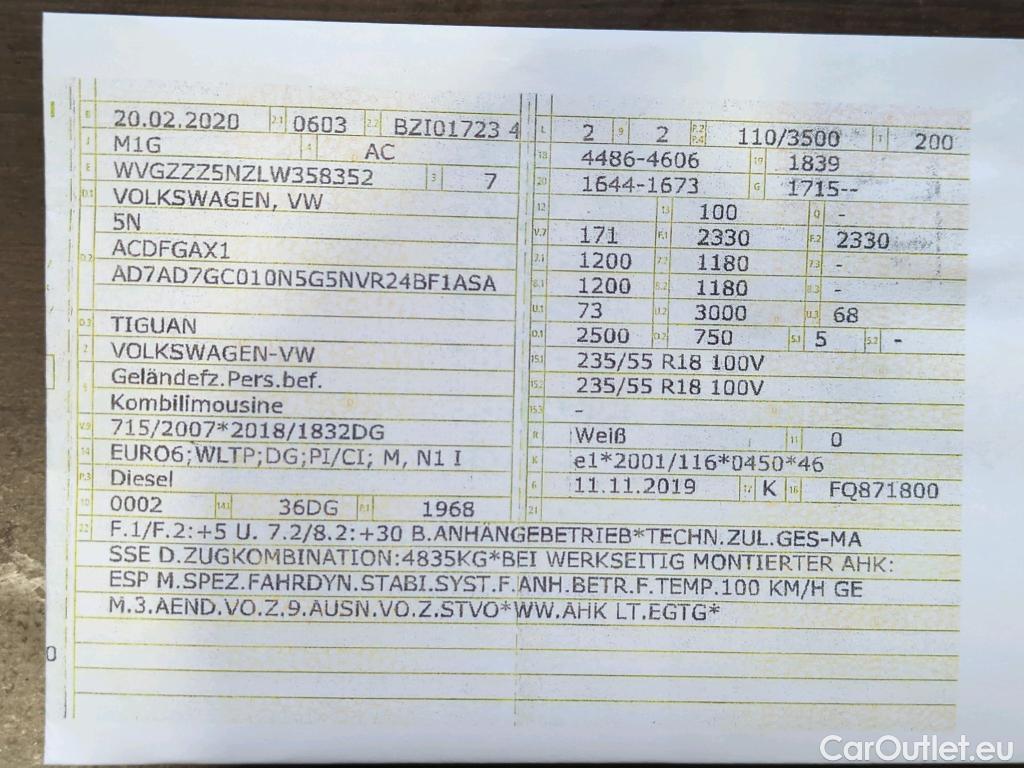 B 20.02.2020 2.1 0603 2.2 BZI01723 4
J M1G 4 AC
E WVGZZZ5NZLW358352 3 7
D.1 VOLKSWAGEN, VW
5N
D.2 ACDFGAX1
AD7AD7GC010N5G5NVR24BF1ASA
D.3 TIGUAN
2 VOLKSWAGEN-VW
5 Geländefz.Pers.bef.
Kombilimousine
V.9 715/2007*2018/1832DG
14 EURO6;WLTP;DG;PI/CI; M, N1 I
P.3 Diesel
10 0002 14.1 36DG P.1 1968
L 2 9 2 P.2 P.4 110/3500 T 200
18 4486-4606 19 1839
20 1644-1673 G 1715--
12 13 100 Q -
V.7 171 F.1 2330 F.2 2330
7.1 1200 7.2 1180 7.3 -
8.1 1200 8.2 1180 8.3 -
U.1 73 U.2 3000 U.3 68
O.1 2500 O.2 750 S.1 5 S.2 -
15.1 235/55 R18 100V
15.2 235/55 R18 100V
15.3 -
R Weiß 11 0
K e1*2001/116*0450*46
6 11.11.2019 17 K 16 FQ871800
21
22 F.1/F.2:+5 U. 7.2/8.2:+30 B.ANHÄNGEBETRIEB*TECHN.ZUL.GES-MA
SSE D.ZUGKOMBINATION:4835KG*BEI WERKSEITIG MONTIERTER AHK:
ESP M.SPEZ.FAHRDYN.STABI.SYST.F.ANH.BETR.F.TEMP.100 KM/H GE
M.3.AEND.VO.Z.9.AUSN.VO.Z.STVO*WW.AHK LT.EGTG*
0
CarOutlet.eu